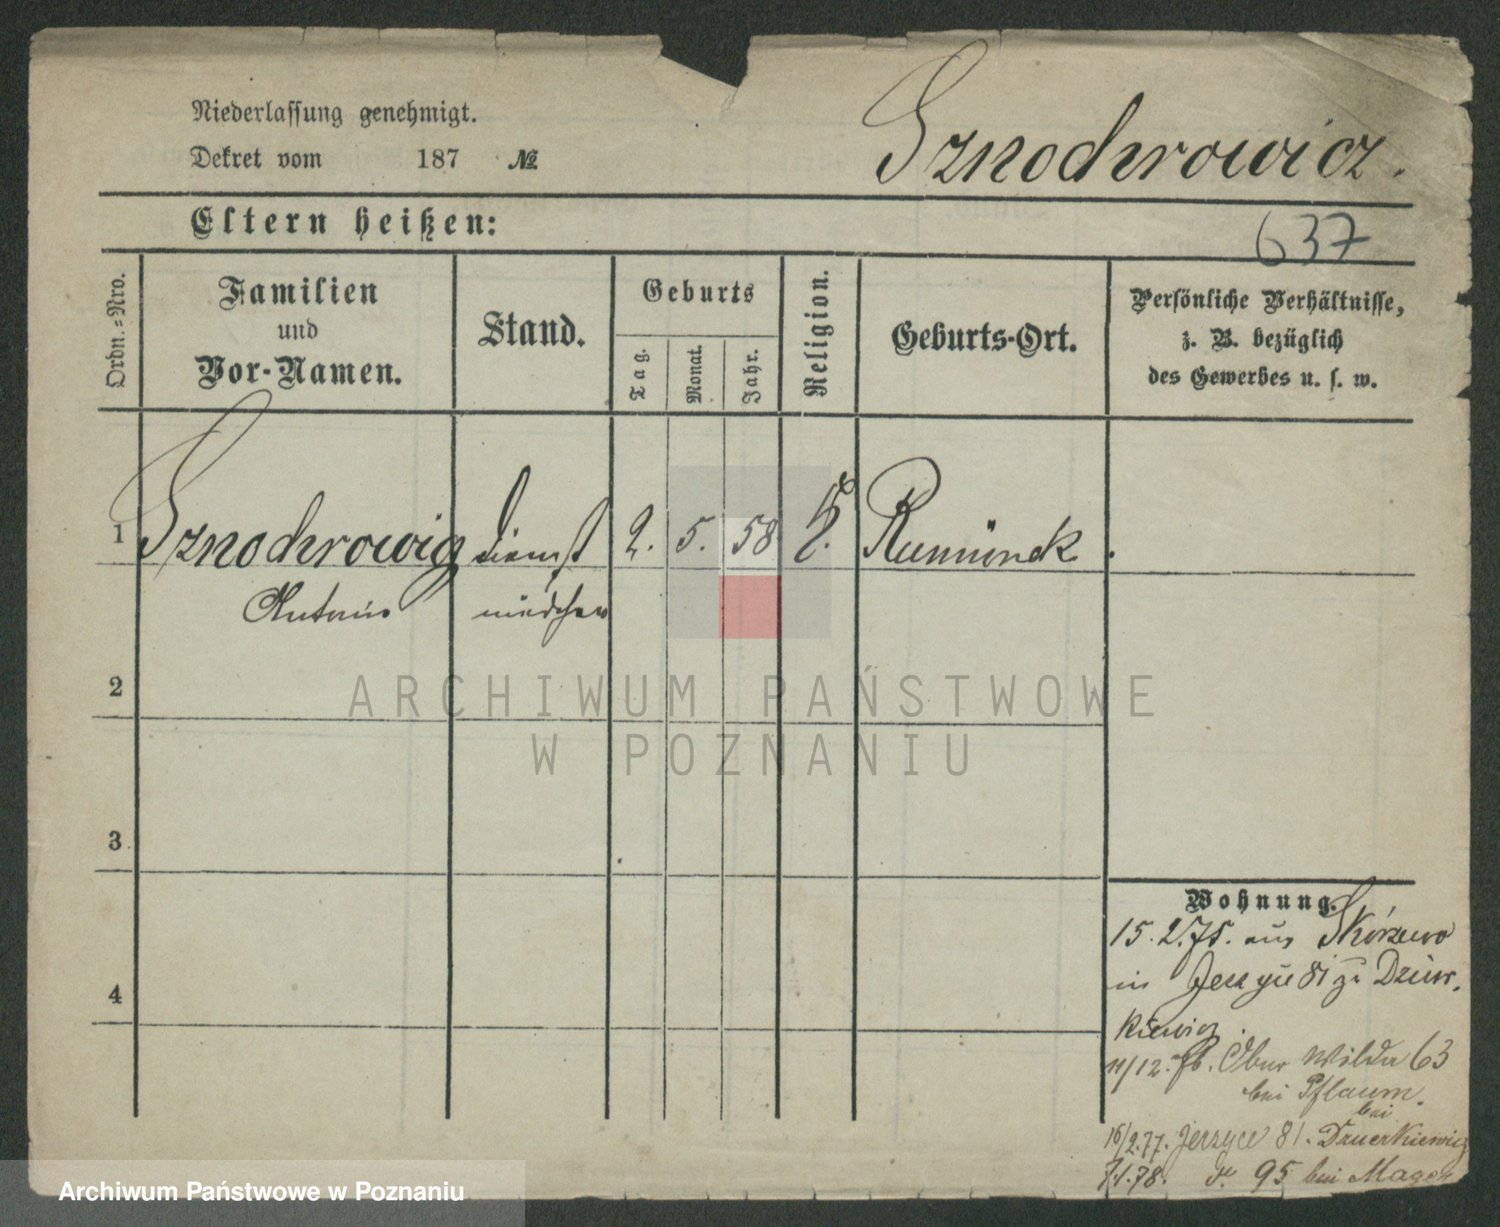 Niederlassung genehmigt.
Dekret vom 187 №
Sznochrowicz.
Eltern heißen:
637
Ordn.=Nro.
Familien
und
Vor-Namen.
Stand.
Geburts
Tag.
Monat.
Jahr.
Religion.
Geburts-Ort.
Persönliche Verhältnisse,
z. B. bezüglich
des Gewerbes u. s. w.
1 Sznochrowicz Dienst 2. 5. 58
mädchen
2
3
4
ARCHIWUM PAŃSTWOWE
W POZNANIU
Wohnung.
15. 2. 75. aus Skórzewo
in 81 zu
11/12. 76. Ober Wilda 63
bei Pflaum.
bei
16/2. 77. Jerzyce 81. Dzuerkiewicz
7.1.78. 95 bei
Archiwum Państwowe w Poznaniu